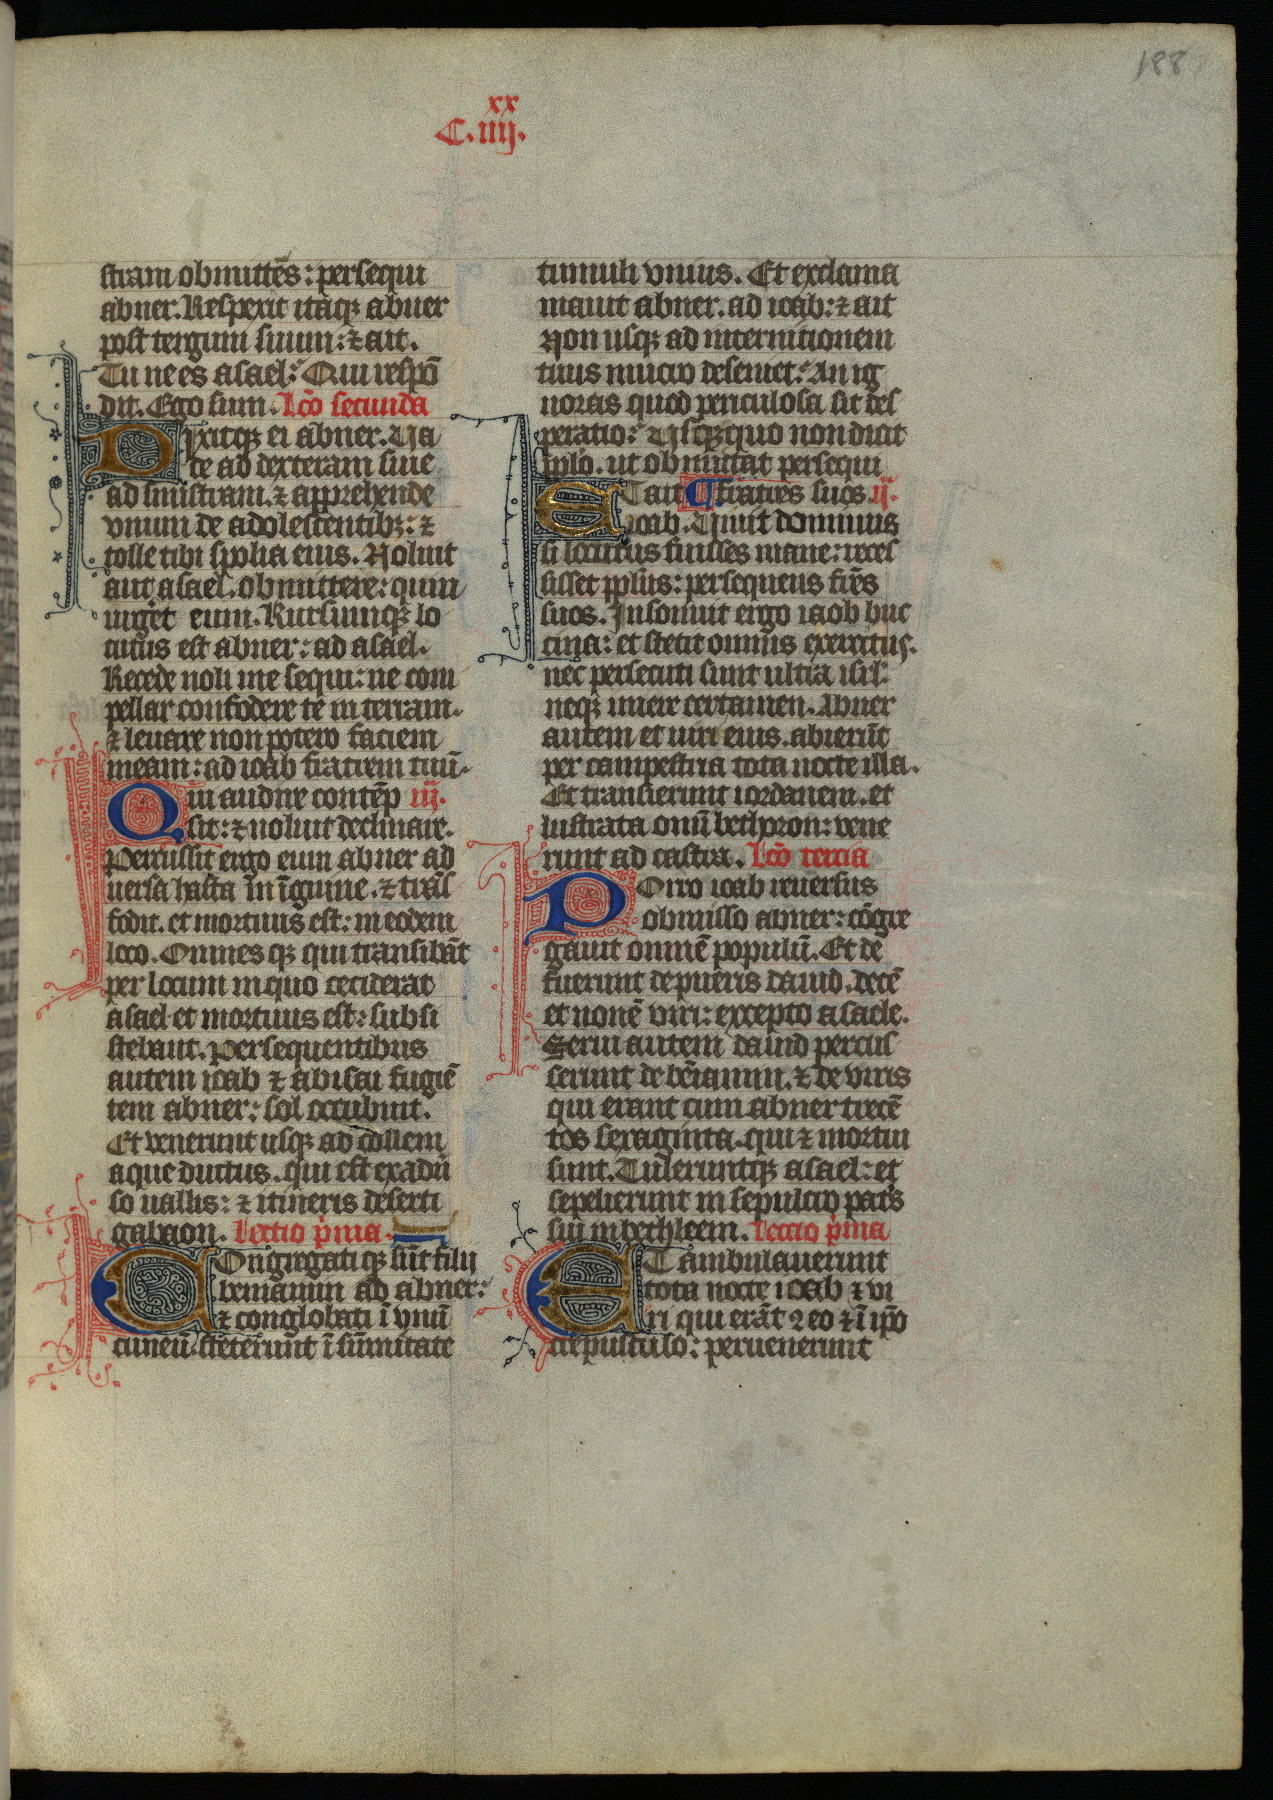 188
xx
C. iiij.
stram obmittēs : persequi
abner. Respexit itaqꝫ abner
post tergum suum : ⁊ ait.
Tu ne es asael : Qui respō
dit. Ego sum. Lc̄o secunda
Dixitqꝫ ei abner. Va
de ad dexteram siue
ad sinistram. ⁊ apprehende
vnum de adolescentibꝫ : ⁊
tolle tibi spolia eius. Noluit
aut asael. obmittere : quin
urget eum. Rursumqꝫ lo
cutus est abner : ad asael.
Recede noli me sequi : ne com
pellar confodere te in terram.
⁊ leuare non potero faciem
meam : ad ioab fratrem tuū.
Qui audire contēp iij.
sit : ⁊ noluit declinare.
Percussit ergo eum abner ad
uersa hasta in īguine. ⁊ trās
fodit. et mortuus est : in eodem
loco. Omnes qꝫ qui transibāt
per locum in quo ceciderat
asael et mortuus est : subsi
stebant. Persequentibus
autem ioab ⁊ abisai fugiē
tem abner : sol occubuit.
Et venerunt usqꝫ ad collem
aque ductus. qui est ex adu
so uallis : ⁊ itineris deserti
gabaon. Lectio p̄ma
Congregati qꝫ sūt filij
beniamin ad abner :
⁊ conglobati ī vnū
cuneū steterunt ī sūmitate
tumuli vnius. Et exclama
mauit abner. ad ioab : ⁊ ait
Non usqꝫ ad internitionem
tuus mucro deseuiet : An ig
noras quod periculosa sit des
peratio : Vsqꝫquo non dicit
pplo. ut obmittat persequi
ET ait fratres suos ij.
ioab. Viuit dominus
si locutus fuisses mane : reces
sisset pplūs : persequens frēs
suos. Insonuit ergo iaob buc
cina : et stetit omnis exercitus.
nec persecuti sunt ultra isrl.
neqꝫ iniere certamen. Abner
autem et uiri eius. abierūt
per campestria tota nocte illa.
Et transierunt iordanem. et
lustrata omni bethoron : vene
runt ad castra. Lc̄o tercia
Porro ioab reuersus
obmisso abner : cōgre
gauit omnē populū. Et de
fuerunt de pueris dauid. decē
et nonē viri : excepto asaele.
Serui autem dauid percus
serunt de bēiamin. ⁊ de viris
qui erant cum abner trecē
tos sexaginta. qui ⁊ mortui
sunt. Tuleruntqꝫ asael : et
sepelierunt in sepulcro patris
sui in bethleem. Lectio p̄ma
ET ambulauerunt
tota nocte ioab ⁊ vi
ri qui erāt ꝯ eo ⁊ ī ip̄o
crepusculo : peruenerunt